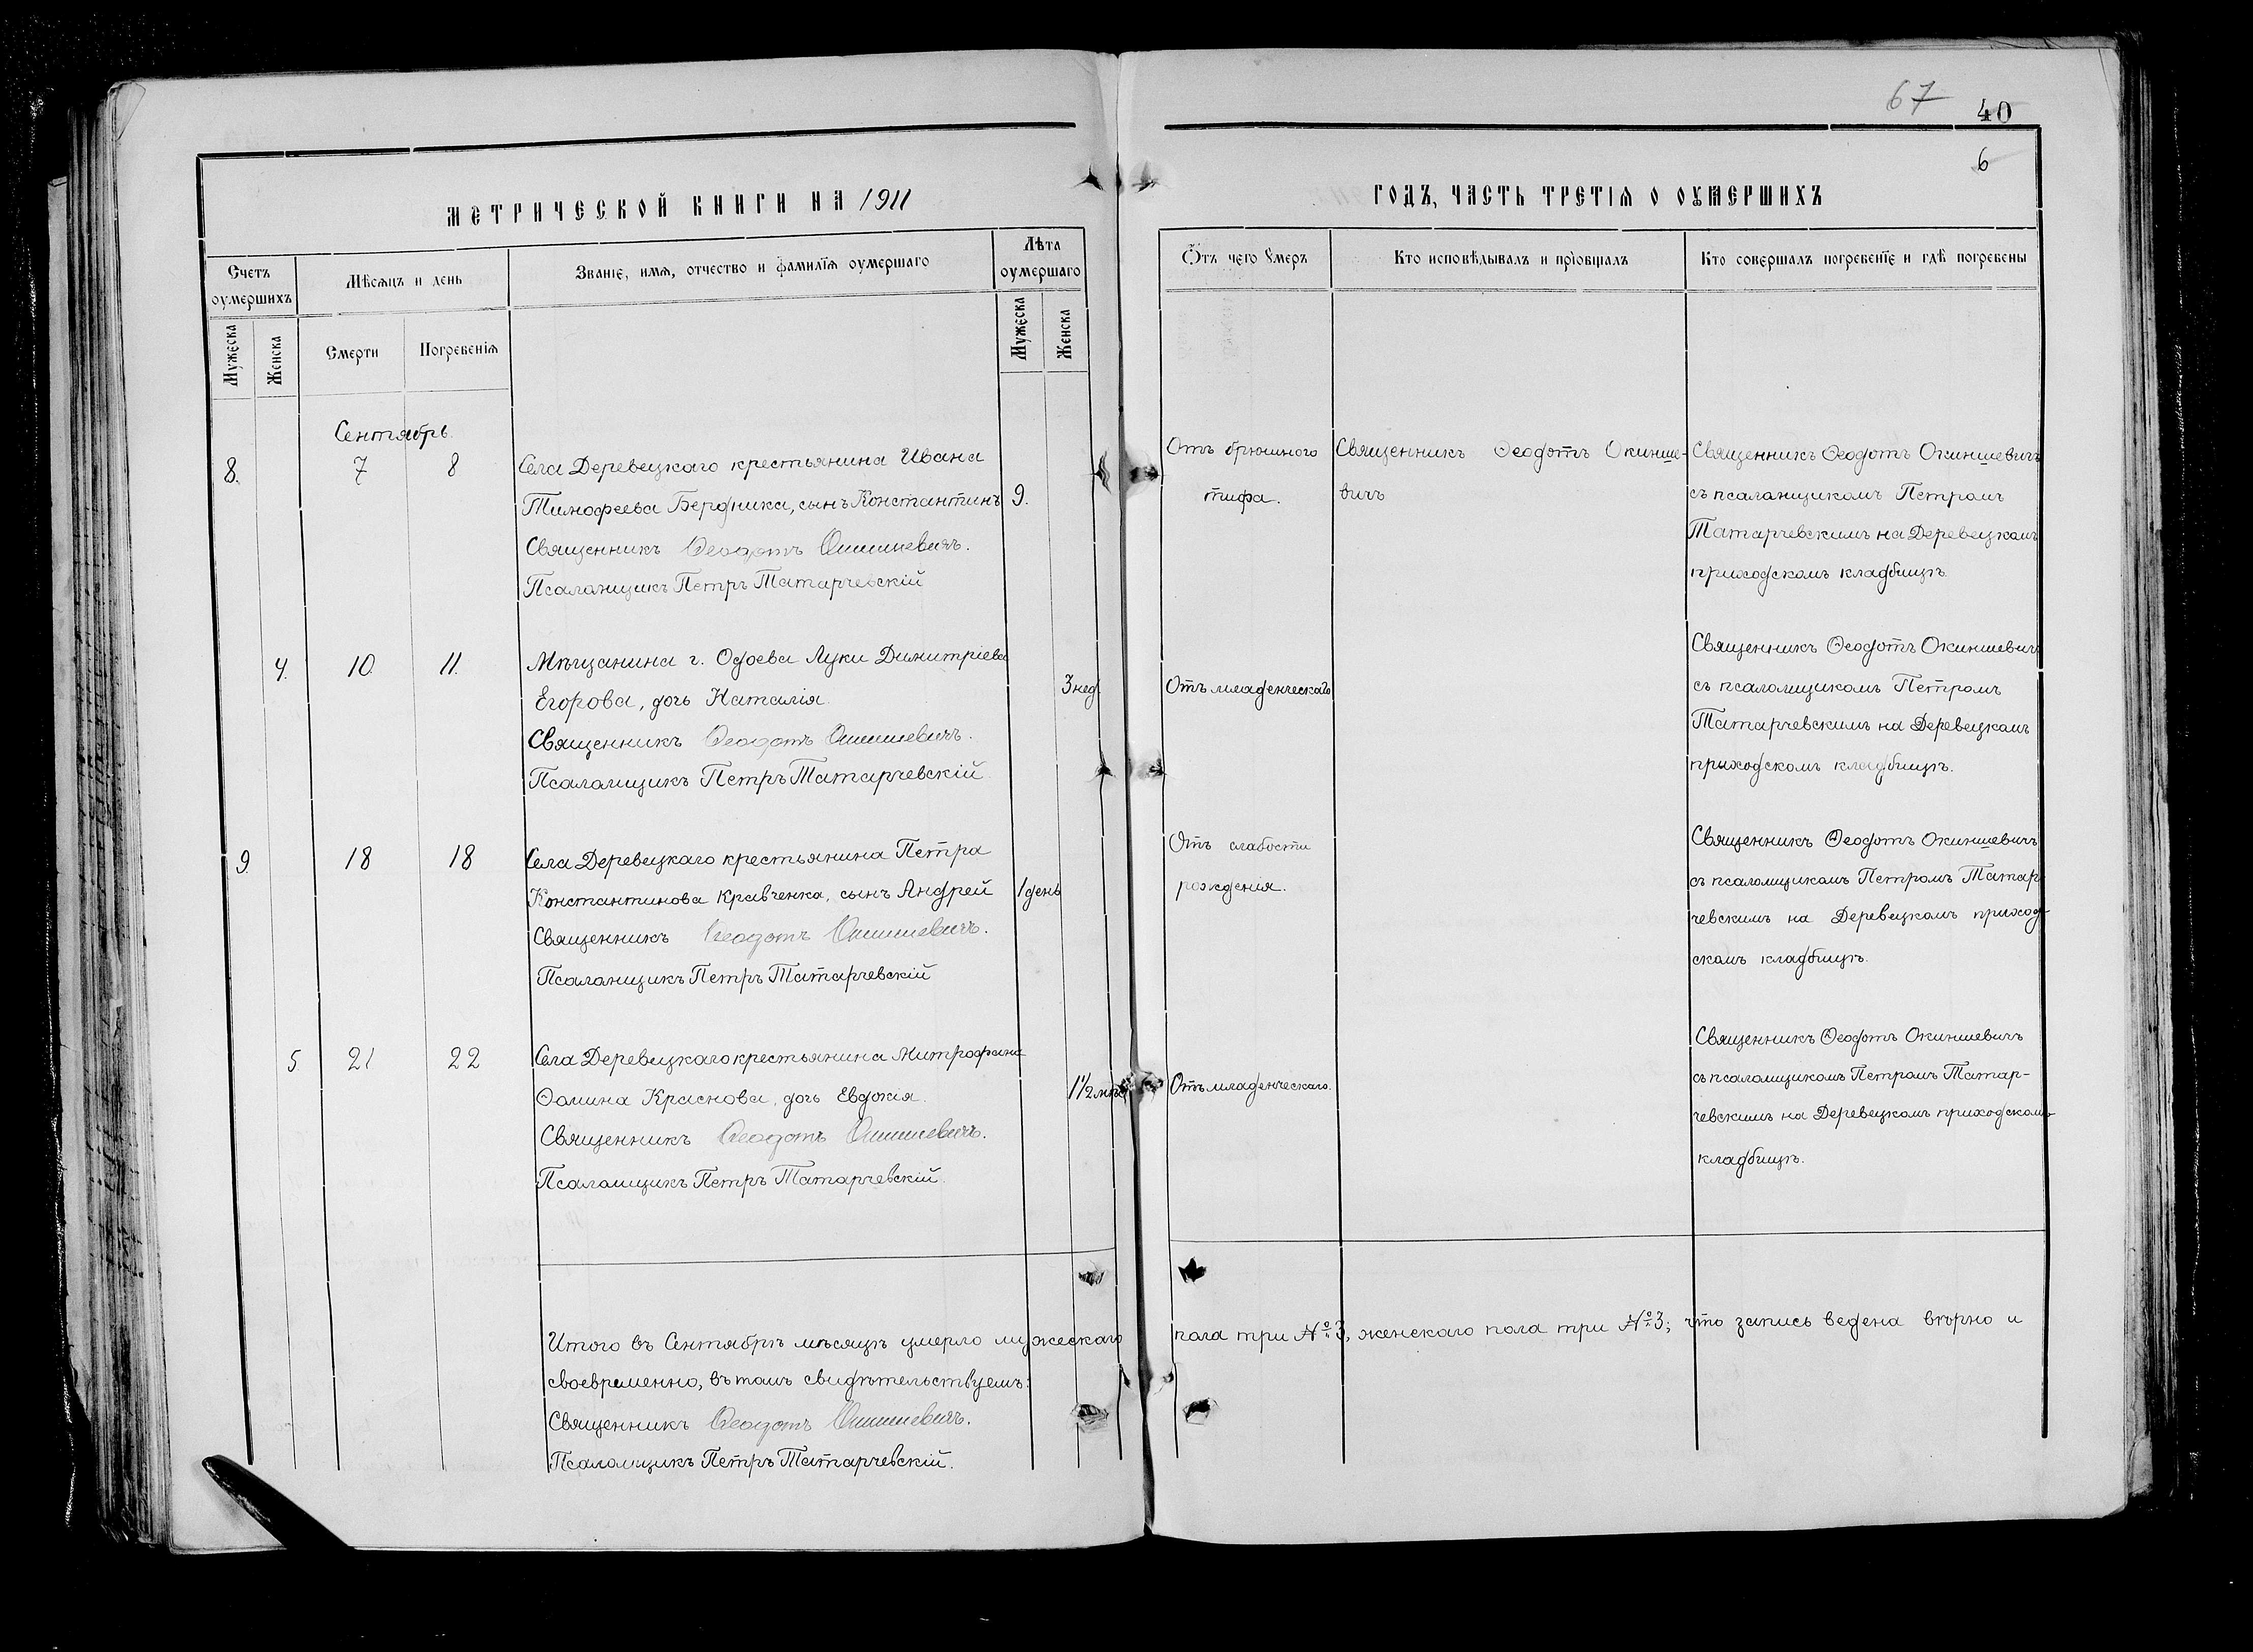 67
40
6
МЕТРИЧЕСКОЙ КНИГИ НА 1911
ГОДЪ, ЧАСТЬ ТРЕТІѦ О ОУМЕРШИХЪ
Счетъ оумершихъ
Мѣсяцъ и день
Званіе, имя, отчество и фамилїя оумершаго
Лѣта оумершаго
Отъ чего умеръ
Кто исповѣдывалъ и прїобщалъ
Кто совершалъ погребенїе и гдѣ погребены
Мужеска
Женска
Смерти
Погребенїя
Мужеска
Женска
Сентябрь.
8. 7 8 Села Деревецкаго крестьянина Ивана
Тимофеева Бердника, сынъ Константинъ 9.
Священникъ Ѳеодотъ Окиншевичъ.
Псаломщикъ Петръ Татарчевскій
Отъ брюшного
тифа.
Священникъ Ѳеодотъ Окинше-
вичъ
Священникъ Ѳеодотъ Окиншевичъ
съ псаломщикомъ Петромъ
Татарчевскимъ на Деревецкомъ
приходскомъ кладбищѣ.
4. 10. 11. Мѣщанина г. Одоева Луки Димитріева
Егорова, дочь Наталія. 3 нед.
Священникъ Ѳеодотъ Окиншевичъ.
Псаломщикъ Петръ Татарчевскій.
Отъ младенческаго
Священникъ Ѳеодотъ Окиншевичъ
съ псаломщикомъ Петромъ
Татарчевскимъ на Деревецкомъ
приходскомъ кладбищѣ.
9. 18 18 Села Деревецкаго крестьянина Петра
Константинова Кравченка, сынъ Андрей 1 день
Священникъ Ѳеодотъ Окиншевичъ.
Псаломщикъ Петръ Татарчевскій
Отъ слабости
рожденія.
Священникъ Ѳеодотъ Окиншевичъ
съ псаломщикомъ Петромъ Татар-
чевскимъ на Деревецкомъ приход-
скомъ кладбищѣ.
5 21 22 Села Деревецкаго крестьянина Митрофана
Ѳомина Краснова, дочь Евдокія. 1 1/2 мѣс.
Священникъ Ѳеодотъ Окиншевичъ.
Псаломщикъ Петръ Татарчевскій.
Отъ младенческаго.
Священникъ Ѳеодотъ Окиншевичъ
съ псаломщикомъ Петромъ Татар-
чевскимъ на Деревецкомъ приходскомъ
кладбищѣ.
Итого въ Сентябрѣ мѣсяцѣ умерло мужескаго пола три №3, женскаго пола три №3; что запись ведена вѣрно и
своевременно, въ томъ свидѣтельствуемъ:
Священникъ Ѳеодотъ Окиншевичъ.
Псаломщикъ Петръ Татарчевскій.